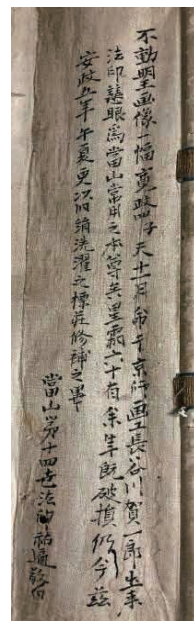 不動明王画像一幅寛政四子天十一月於于京師画工長谷川賀一郎出来
法印慈眼為當山常用之本尊矣星霜六十有余年既破損仍今茲
安政五年午夏更以旧絹洗濯之標荘修補之畢
當山第十四世法印祐通敬白